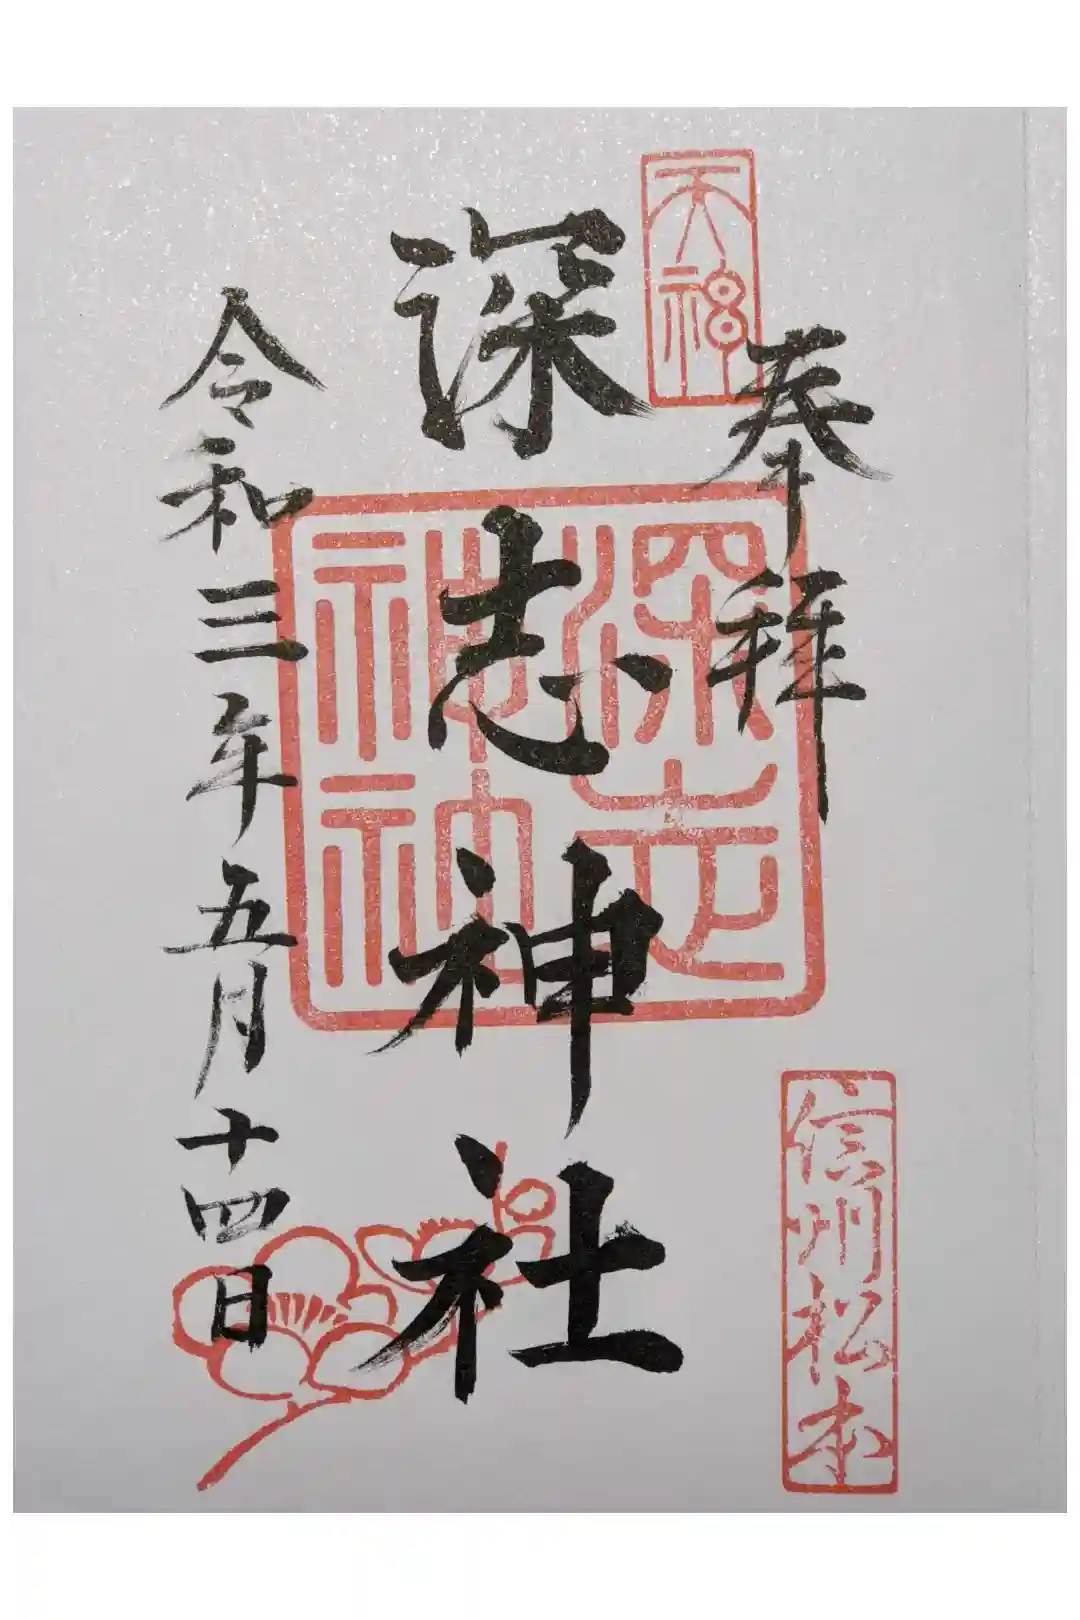 天神
奉拝
信州松本
深志神社
深志
神社
令和三年五月十四日